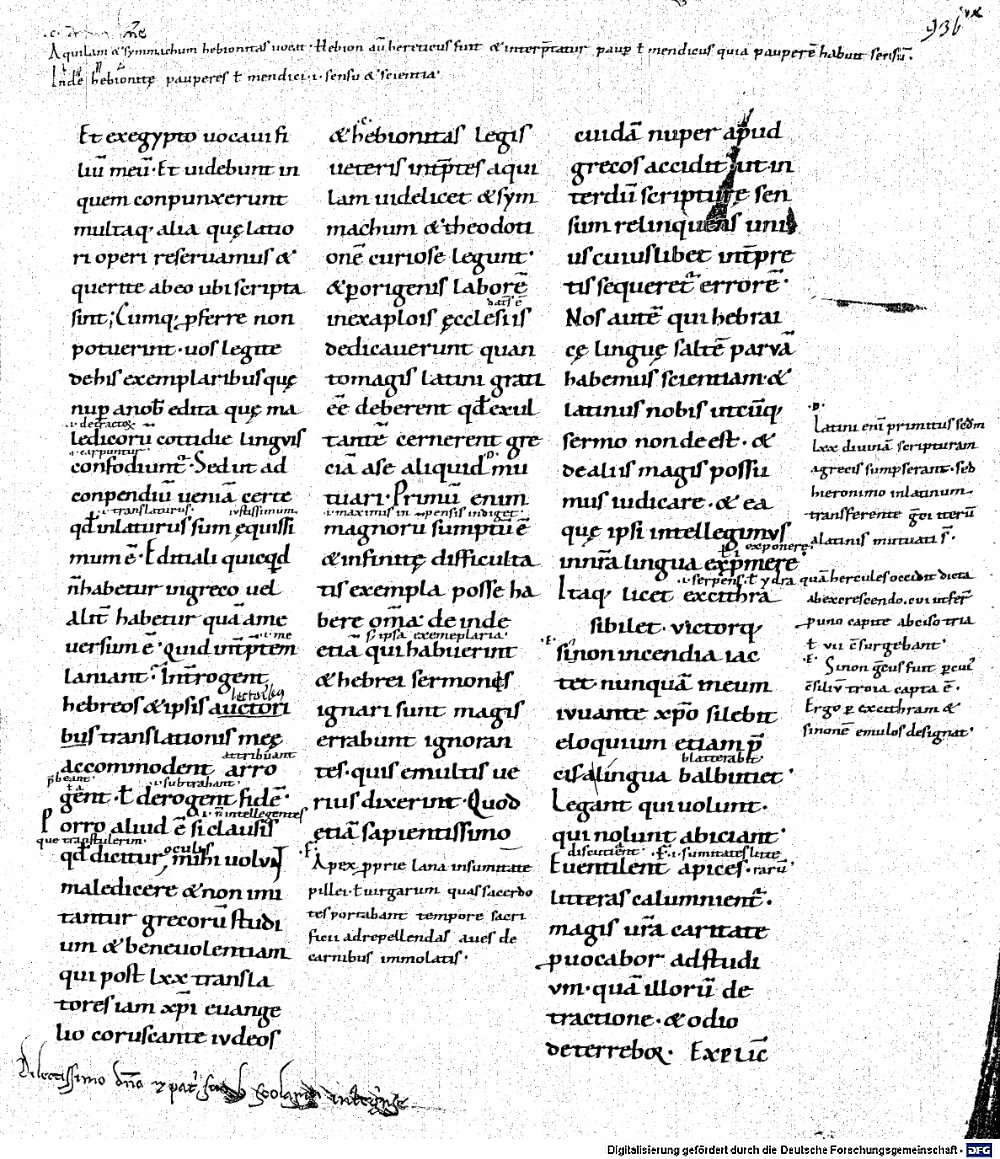 93b
Aquilam & symmachum hebionitas uocat. Hebion aū hereticus fuit & interp̄tatur paup ł mendicus quia pauperē habuit sensū.
Inde hebionitę pauperes ł mendici .i. sensu & scientia.
Et ex egypto uocaui fi
liū meū. Et uidebunt in
quem conpunxerunt
multaq; alia quę latio
ri operi reseruamus &
querite ab eo ubi scripta
sint; Cumq; ꝓferre non
potuerint. uos legite
de his exemplaribus quę
nup a nob̄ edita quę ma
.i. detractoꝝ
ledicorū cottidie linguis
carpuntur
confodiunt̄. Sed ut ad
conpendiū ueniā certe
.i. translaturus. iustissimum
qd̄ inlaturus sum ęquissi
mum ē. Edit iali quicq̄d
n̄ habetur in greco uel
alit̄ habetur quā a me
.i. me
uersum ē. Quid int̄p̄tem
laniant. Int̄rogent
lectoribus
hebreos & ipsis auctori
bus translationis męę
attribuant
accommodent arro
p̄beant .i. subtrahant
gent. ł derogent fidē.
.i. n̄ intellegentes
Porro aliud ē si clausis
oculis
qd̄ dicitur, mihi uolunt
maledicere & non imi
tantur grecorū studi
um & beneuolentiam
qui post lxx transla
tores iam xp̄i euange
lio coruscante iudeos
Dilectissimo dn̄o & pat̄
& hebionitas legis
ueteris int̄p̄tes aqui
lam uidelicet & sym
machum & theodoti
onē curiose legunt.
& ꝑ origenis laborē
in exaplois ęcclesiis
dedicauerunt quan
to magis latini grati
ēē deberent qd̄ exul
tantē cernerent gre
ciā a se aliquid mu
tuari. Primū enim
magnorū sumptū ē
& infinitę difficulta
tis exempla posse ha
bere om̄a. deinde
.s. ipsa exemeplaria.
etiā qui habuerint
& hebrei sermonis
ignari sunt magis
errabunt ignoran
tes. quis e multis ue
rius dixerint. Quod
etiā sapientissimo
Apex ꝓprie lana in sumitate
pillei. ł uirgarum quas sacerdo
tes portabant tempore sacri
ficii ad repellendas aues de
carnibus immolatis.
cuidā nuper apud
grecos accidit ut in
terdū scripturę sen
sum relinquens uni
us cuiuslibet int̄pre
tis sequeret̄ errorē.
Nos autē qui hebrai
cę linguę saltē paruā
habemus scientiam. &
latinus nobis utcūq;
sermo non deest. &
de aliis magis possu
mus iudicare. & ea
quę ipsi intellegimus
exponere
in nr̄a lingua exp̄mere
Itaq; licet excethra
sibilet. uictorq;
sinon incendia iac
tet. nunquā meum
iuuante xp̄o silebit
eloquium etiam p̄
blatterabit
cisa lingua balbutiet.
Legant qui uolunt.
qui nolunt abiciant
discutient .i. sumitates litterarū
Euentilent apices.
litteras calumnient̄.
magis ur̄a caritate
ꝓuocabor ad studi
um. quā illorū de
tractione. & odio
deterrebor. Explic̄
Latini eni primitus sedm
lxx diuinā scripturam
a grecis sumpserant. sed
hieronimo in latinum
transferente greci iterū
a latinis mutuati s̄.
.i. serpens. ł ydra quā hercules occidit dicta
ab excrescendo. cui int̄fer
p uno capite absciso tria
ł uii c̄surgebant.
Sinon greus fuit ꝑ cui
c̄siliū troia capta ē.
Ergo ꝑ excethram &
sinonē emulos designat.
Digitalisierung gefördert durch die Deutsche Forschungsgemeinschaft - DFG